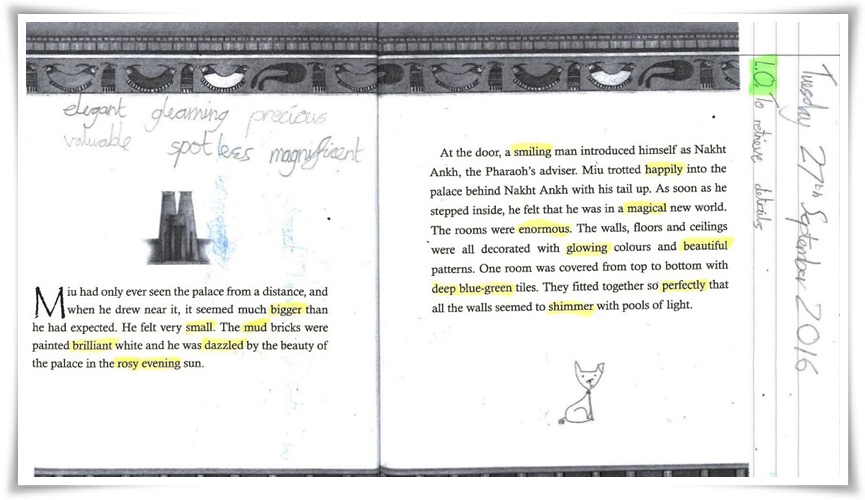 elegant gleaming precious
valuable spotless magnificent
Miu had only ever seen the palace from a distance, and
when he drew near it, it seemed much bigger than
he had expected. He felt very small. The mud bricks were
painted brilliant white and he was dazzled by the beauty of
the palace in the rosy evening sun.
At the door, a smiling man introduced himself as Nakht
Ankh, the Pharaoh's adviser. Miu trotted happily into the
palace behind Nakht Ankh with his tail up. As soon as he
stepped inside, he felt that he was in a magical new world.
The rooms were enormous. The walls, floors and ceilings
were all decorated with glowing colours and beautiful
patterns. One room was covered from top to bottom with
deep blue-green tiles. They fitted together so perfectly that
all the walls seemed to shimmer with pools of light.
Tuesday 27th September 2016
L.O. To retrieve details